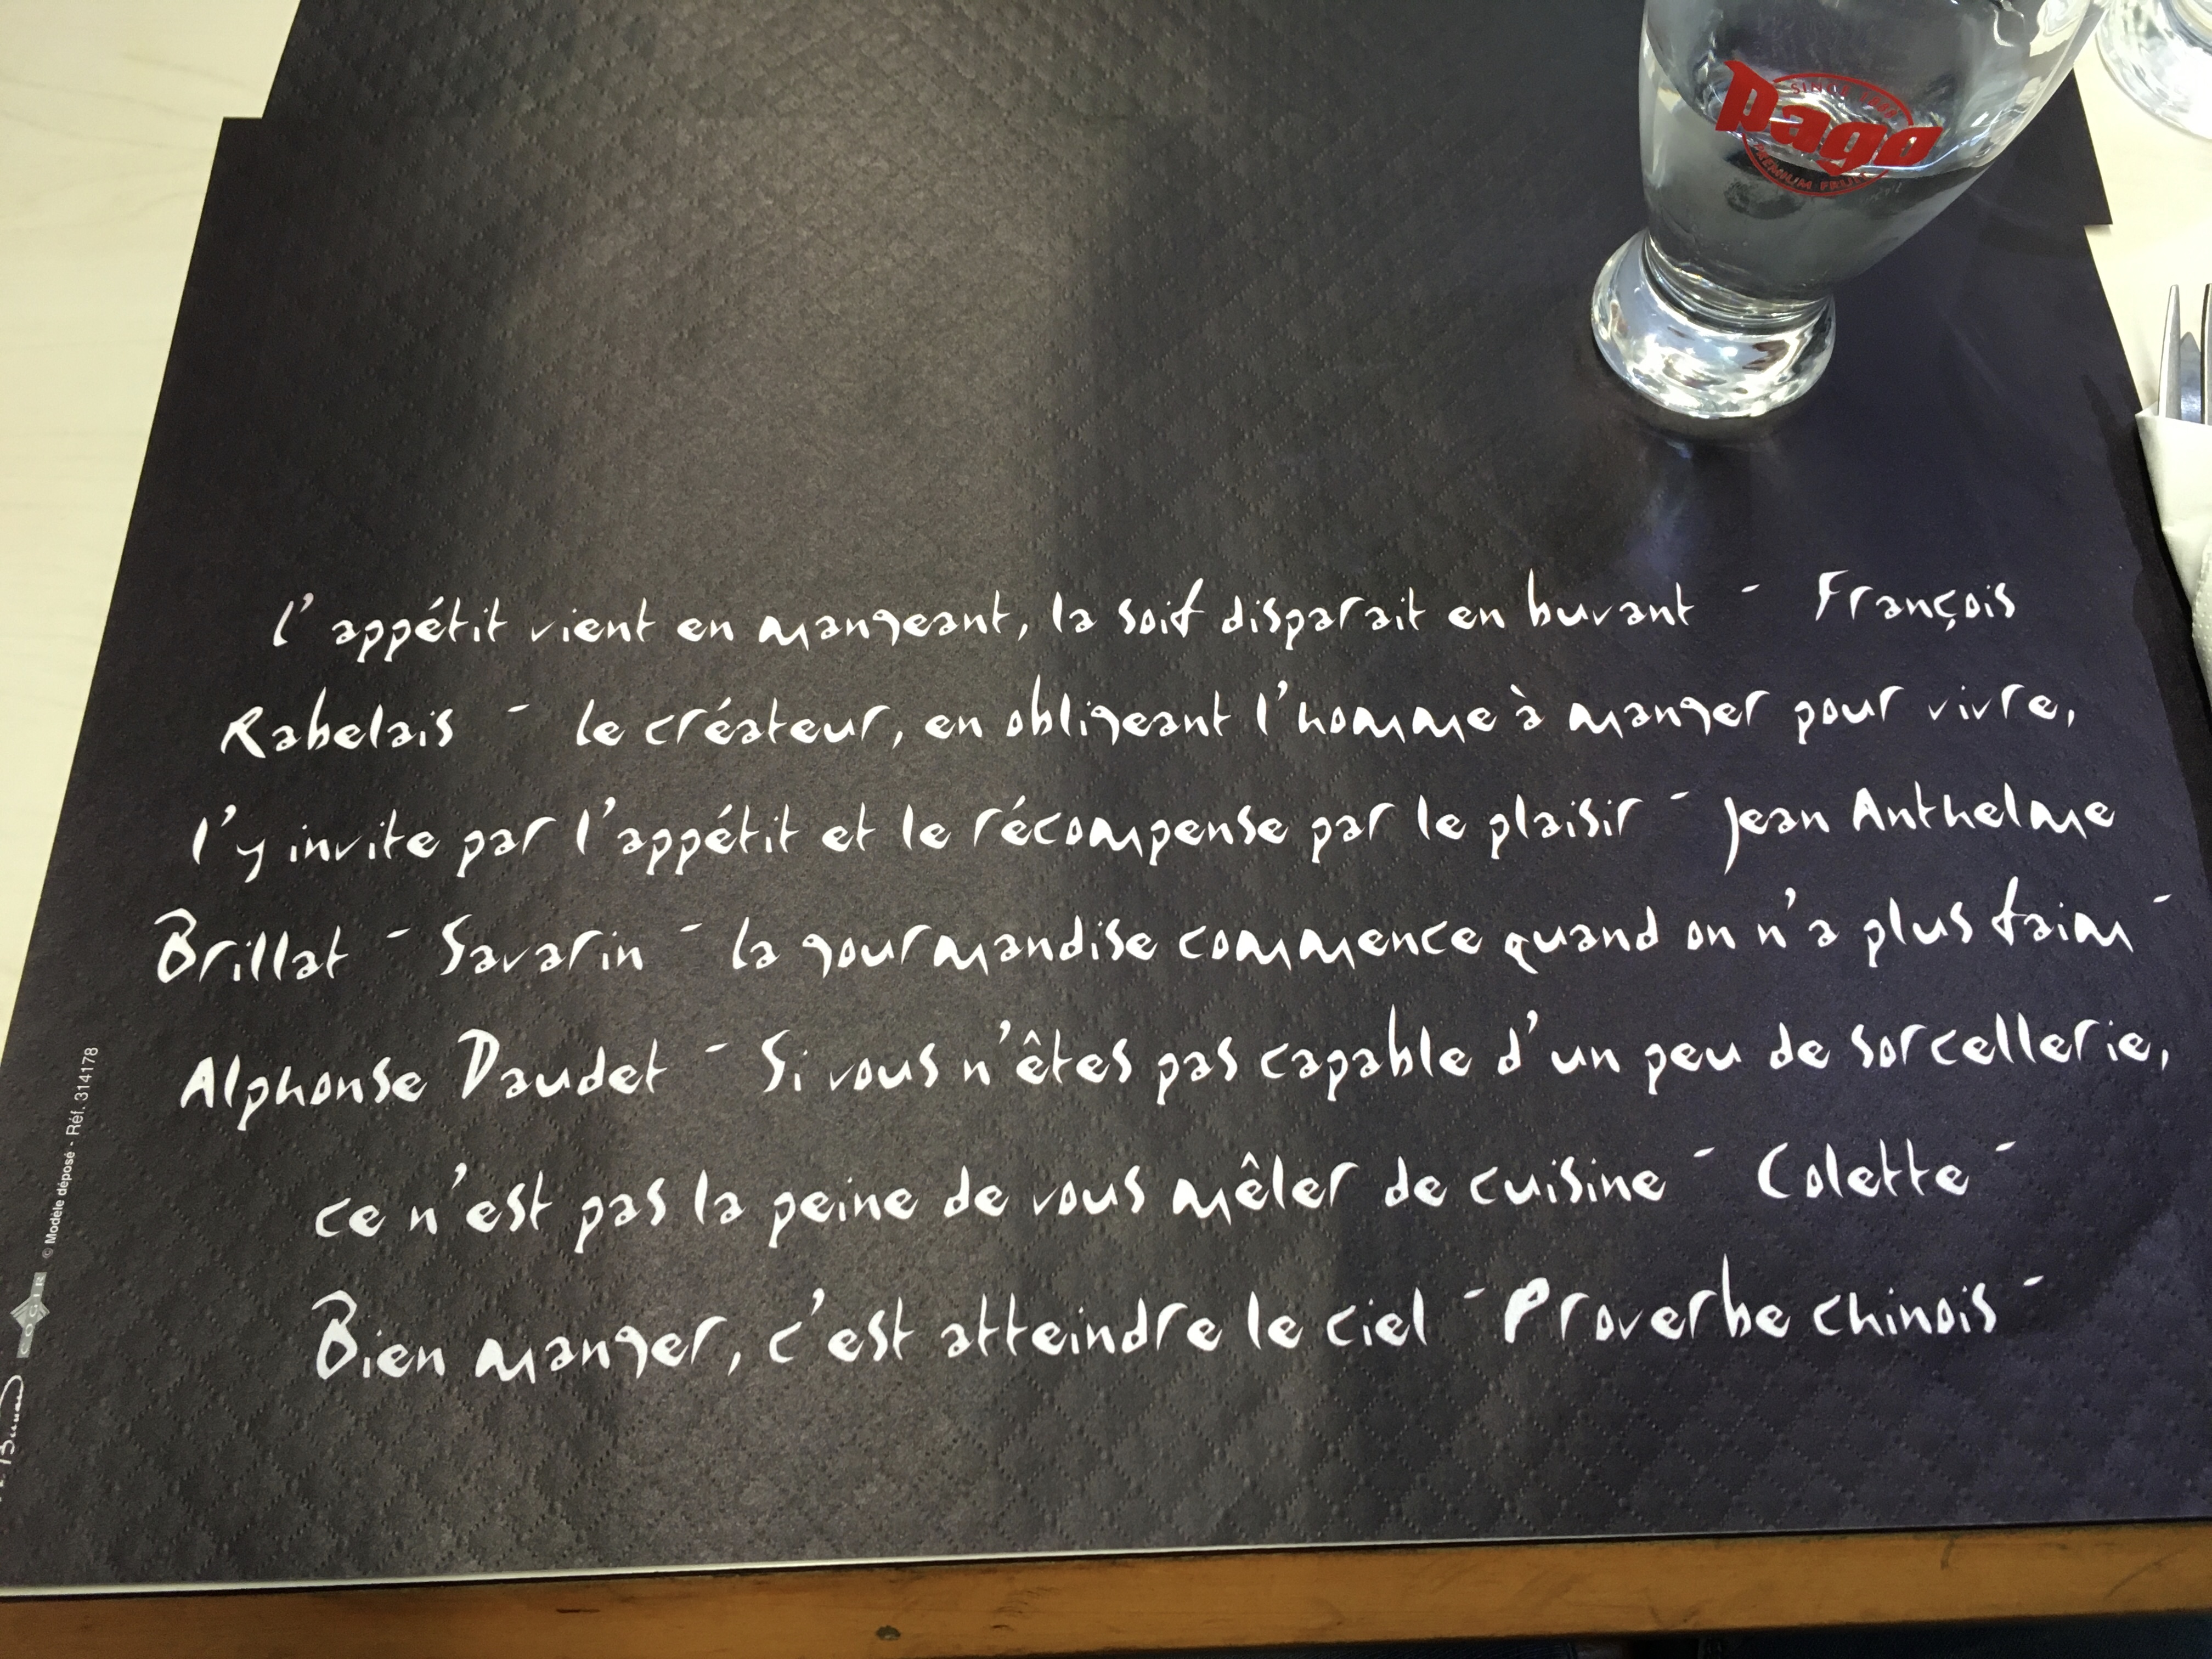 SINCE 1888
Pago
PREMIUM FRUIT
l'appétit vient en mangeant, la soif disparait en buvant - François
Rabelais - le créateur, en obligeant l'homme à manger pour vivre,
l'y invite par l'appétit et le récompense par le plaisir - Jean Anthelme
Brillat - Savarin - la gourmandise commence quand on n'a plus faim -
Alphonse Daudet - Si vous n'êtes pas capable d'un peu de sorcellerie,
ce n'est pas la peine de vous mêler de cuisine - Colette -
Bien manger, c'est atteindre le ciel - Proverbe chinois -
COGIR © Modèle déposé - Réf. 314178